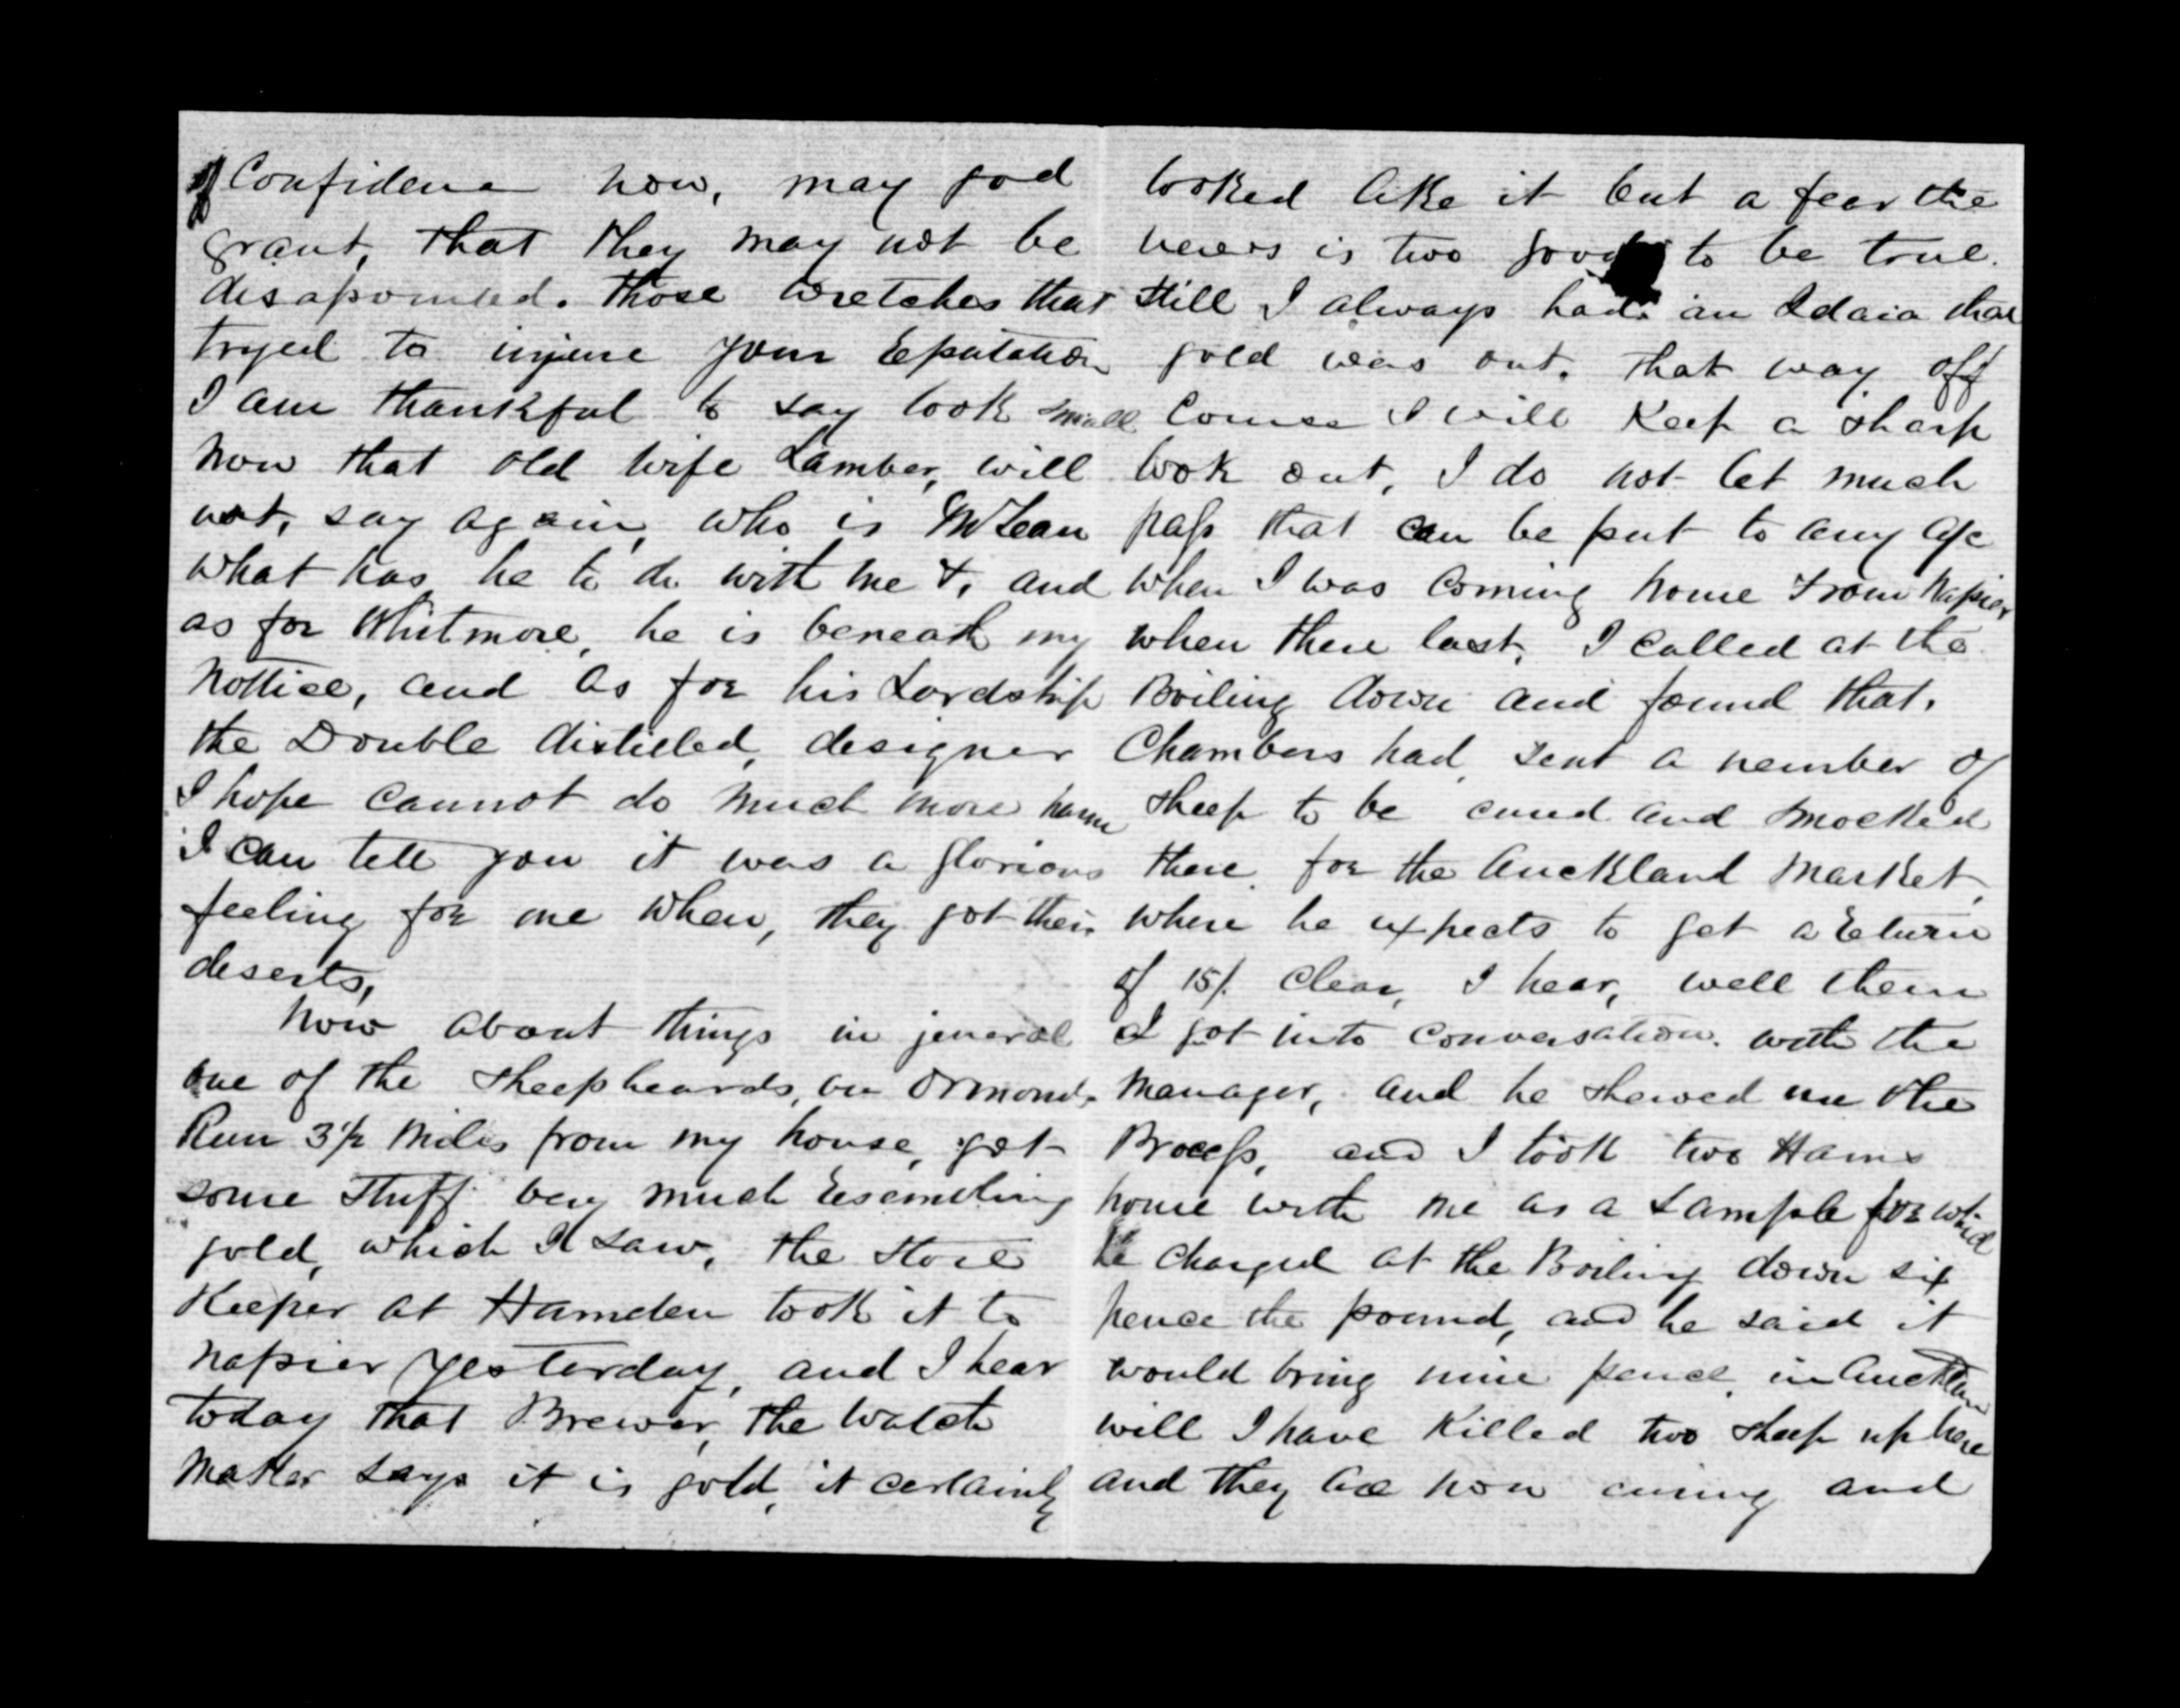 of Confidence now, may god
grant, that they may not be
disapointed. those wretches that
tryed to injure your Reputation
I am thankful to say look small
now that old wife Lamber, will
not, say again, who is McLean
what has he to do with me &, and
as for Whitmore, he is beneath my
nottice, and as for his Lordship
the Double distilled, designer
I hope cannot do much more harm
I can tell you it was a glorious
feeling for me when, they got their
deserts,
Now about things in jeneral
one of the sheepheards, on Ormonds
Run 3½ miles from my house, got
some stuff very much Resembling
gold, which I saw, the store
Keeper at Hamden took it to
Napier yesterday, and I hear
today that Brewer, the watch
maker says it is gold, it certainly
looked like it but a fear the
news is two good to be true.
still I always had an Idaia that
gold was out. that way off
Course I will Keep a sharp
look out, I do not let much
pass that can be put to any use
when I was coming home from Napier,
when there last, I called at the
Boiling down and found that.
Chambers had sent a number of
sheep to be cured and smocked
there for the Auckland market,
where he expects to get a Return
of 15/. clear, I hear, well them
I got into conversation. with the
manager, and he shewed me the
Process, and I took two Hams
home with me as a sample for which
he charged at the Boiling down six
pence the pound, and he said it
would bring nine pence, in Auckland
will I have Killed two sheep up here
and they are now curing and